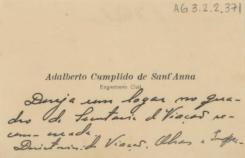 AG 3.2.2.371
Adalberto Cumplido de Sant'Anna
Engenheiro Civil
Deseja um logar no qua-
dro da Secretaria d Viação re-
cem-creada.
Directoria de Viação, Obras e